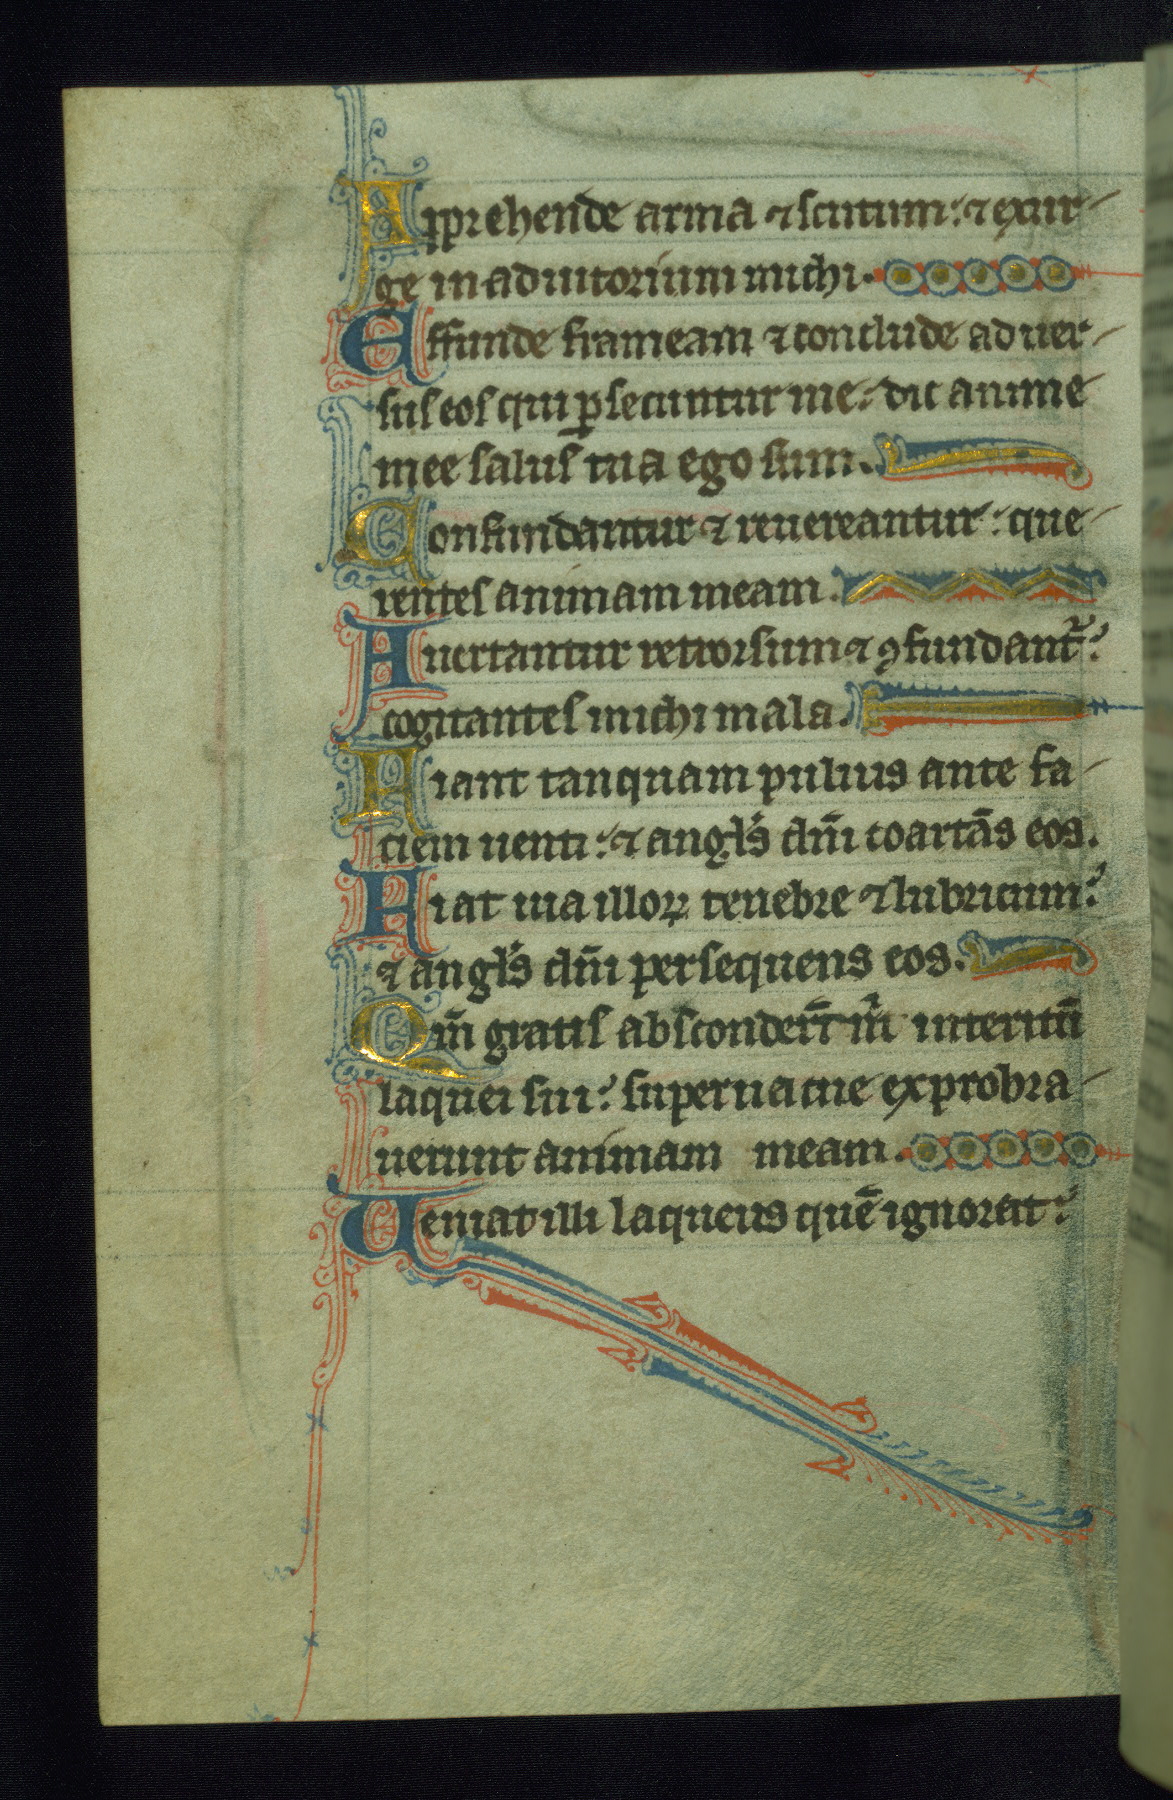 Apprehende arma ⁊ scutum: ⁊ exur-
ge in adiutorium michi.
Effunde frameam ⁊ conclude aduer-
sus eos qui ꝑsecuntur me: dic anime
mee salus tua ego sum.
Confundantur ⁊ reuereantur: que-
rentes animam meam.
Auertantur retrorsum ⁊ ꝯfundant᷑:
cogitantes michi mala.
Fiant tanquam puluis ante fa-
ciem uenti: ⁊ angl̓s dn̄i coartās eos.
Fiat uia illoꝝ tenebre ⁊ lubricum:
⁊ angl̓s dn̄i persequens eos.
Qm̄ gratis absconder̄t m̓ interitū
laquei sui: superuacue exprobra-
uerunt animam meam.
Ueniat illi laqueus quē ignorat: